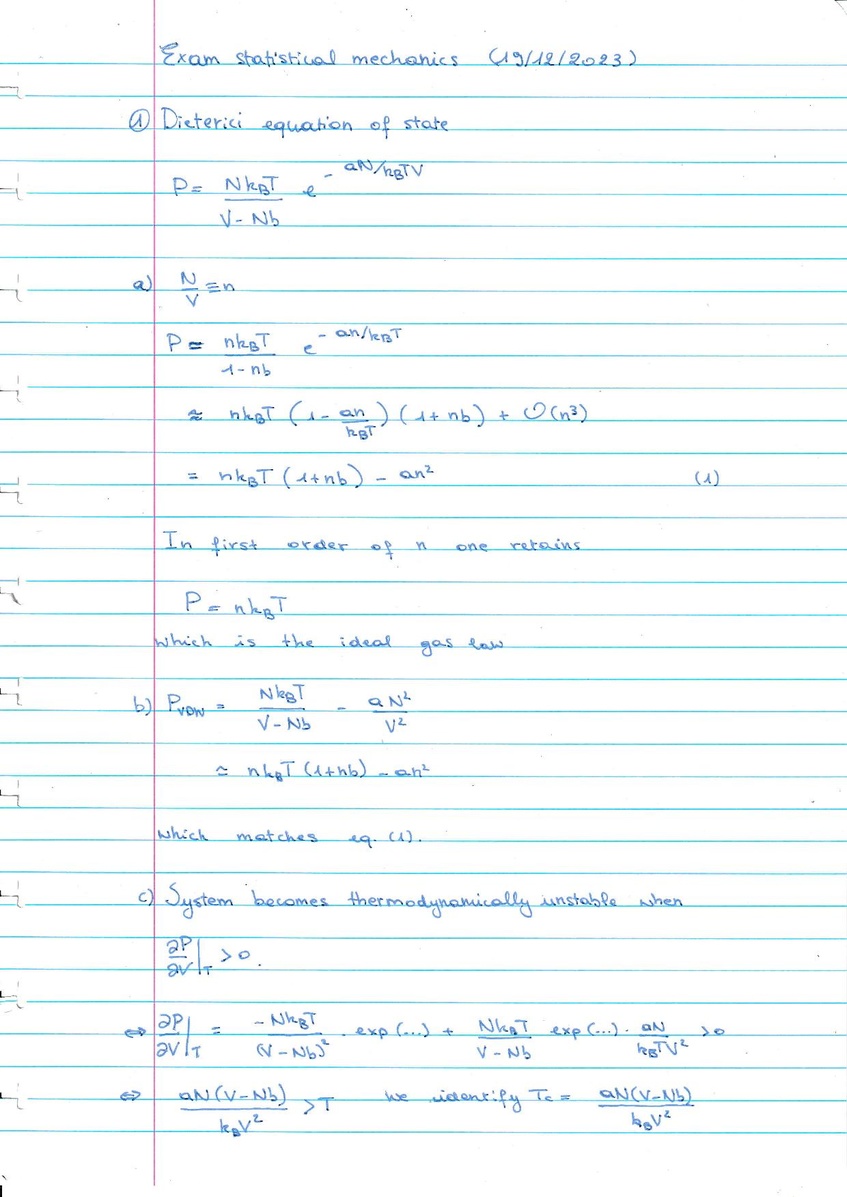 Exam statistical mechanics (19/12/2023)
① Dieterici equation of state
P = \frac{Nk_BT}{V-Nb} e^{-aN/k_BTV}
a) \frac{N}{V} ≡ n
P = \frac{nk_BT}{1-nb} e^{-an/k_BT}
≈ nk_BT (1 - \frac{an}{k_BT}) (1+nb) + O(n^3)
= nk_BT (1+nb) - an^2 (1)
In first order of n one retains
P = nk_BT
which is the ideal gas law
b) P_{VDW} = \frac{Nk_BT}{V-Nb} - \frac{aN^2}{V^2}
≃ nk_BT (1+nb) - an^2
which matches eq. (1).
c) System becomes thermodynamically unstable when
\frac{∂P}{∂V}|_T > 0.
⇔ \frac{∂P}{∂V}|_T = \frac{-Nk_BT}{(V-Nb)^2} . exp(...) + \frac{Nk_BT}{V-Nb} exp(...) . \frac{aN}{k_BTV^2} > 0
⇔ \frac{aN(V-Nb)}{k_BV^2} > T We identify T_c = \frac{aN(V-Nb)}{k_BV^2}